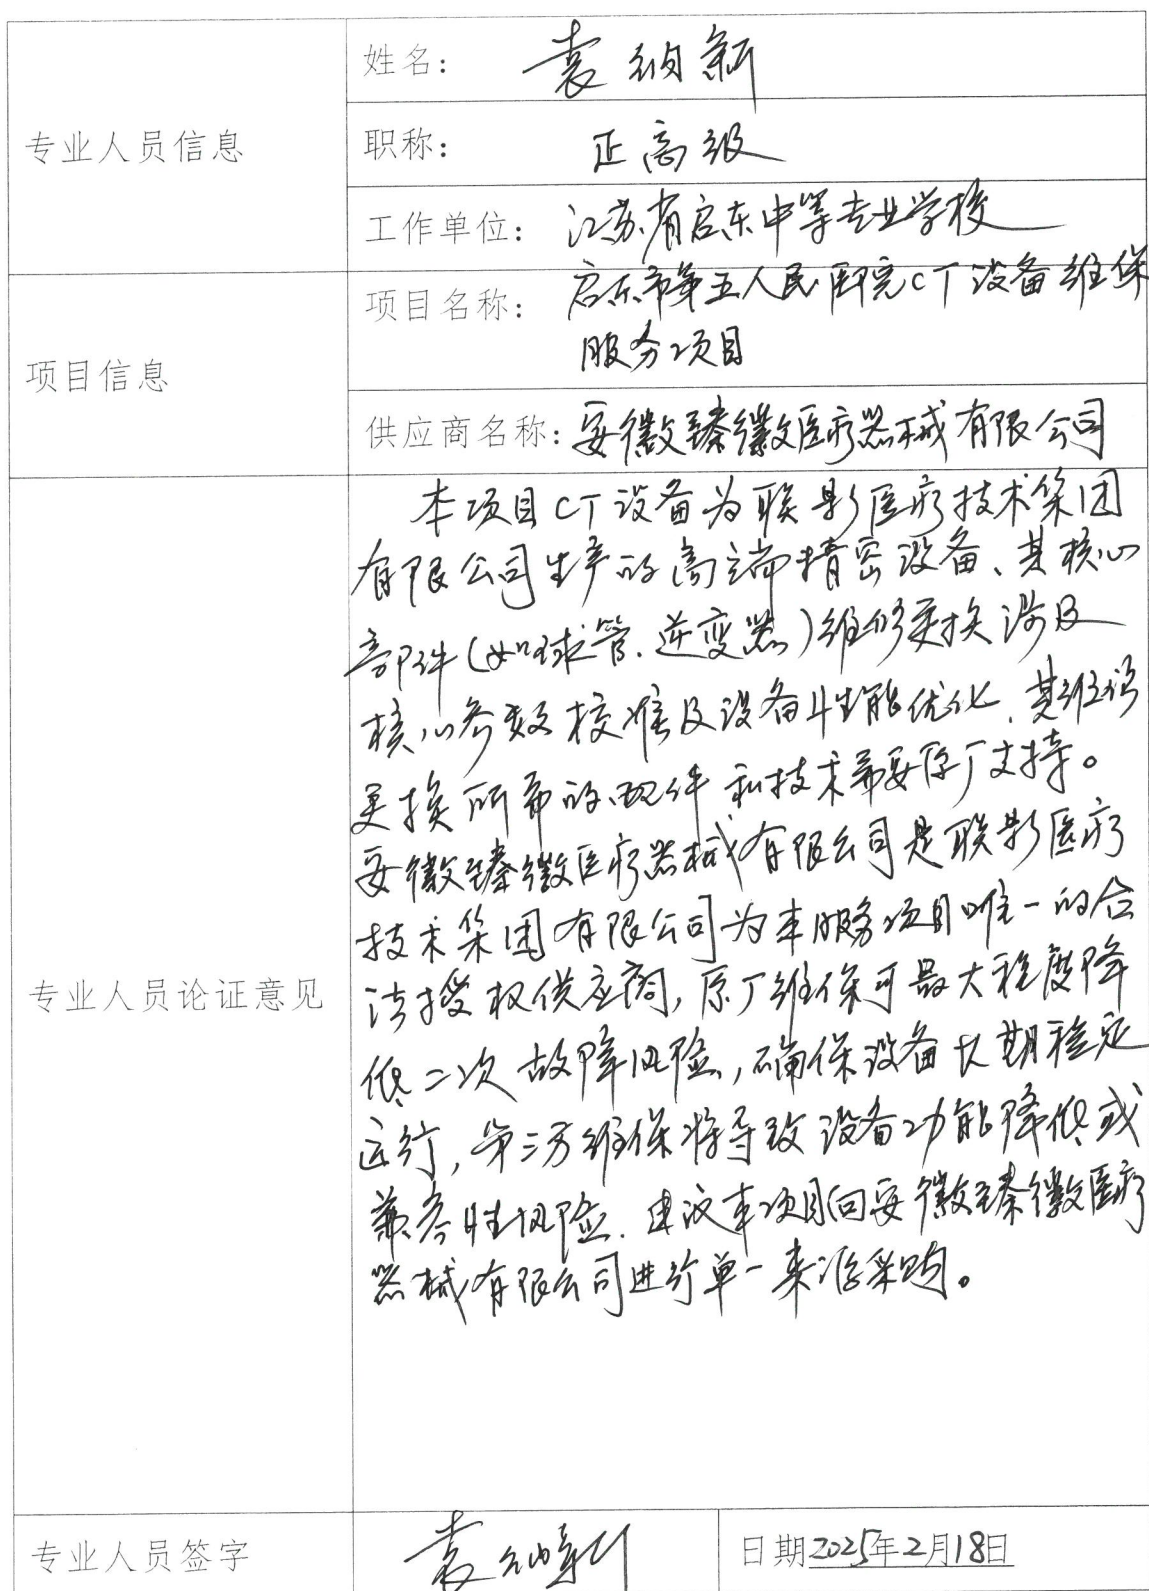 姓名： 袁纳新
职称： 正高级
专业人员信息
工作单位： 江苏省启东中等专业学校
项目名称： 启东市第五人民医院CT设备维保
服务项目
项目信息
供应商名称：安徽臻徽医疗器械有限公司
本项目CT设备为联影医疗技术集团
有限公司生产的高端精密设备、其核心
部件(如球管、逆变器)维修更换涉及
核心参数校准及设备性能优化、其维修
更换所需的配件和技术需要原厂支持。
安徽臻徽医疗器械有限公司是联影医疗
技术集团有限公司为本服务项目唯一的合
法授权供应商,原厂维保可最大程度降
低二次故障风险,确保设备长期稳定
运行,第三方维保将导致设备功能降低或
兼容性风险.建议本项目向安徽臻徽医疗
器械有限公司进行单一来源采购。
专业人员论证意见
专业人员签字 袁纳新 日期2025年2月18日